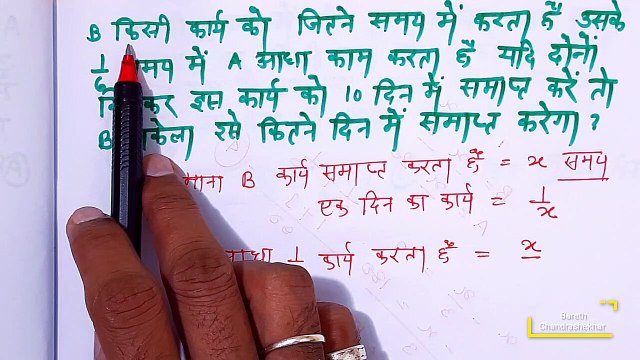 B किसी कार्य को जितने समय में करता है उसके
1/6 समय में A आधा काम करता है यदि दोनों
मिलकर इस कार्य को 10 दिन में समाप्त करें तो
B अकेला इसे कितने दिन में समाप्त करेगा ?
माना B कार्य समाप्त करता है = x समय
एक दिन का कार्य = 1/x
आधा 1 कार्य करता है = x
Bareth
Chandrashekhar